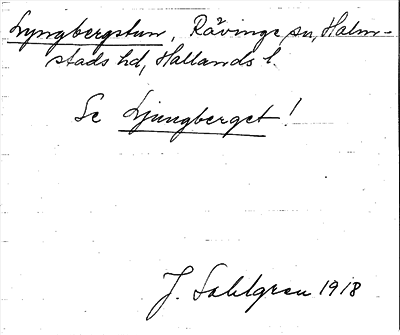 Lyngbergstun, Rävinge sn, Halm-
stads hd, Hallands l.
Se Ljungberget!
J. Sahlgren 1918